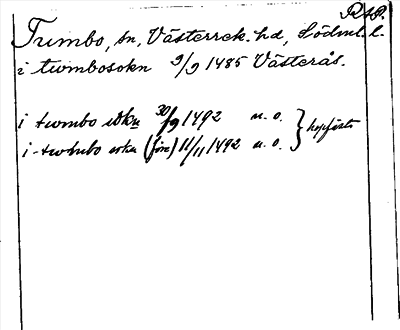 RAP.
Tumbo, sn, Västerrek. hd, Södml. l.
i twmbosokn 9/9 1485 Västerås.
i twmbo sokn 30/9 1492 u. o.
i twmbo sokn (för) 11/11 1492 u. o. } hopfästa